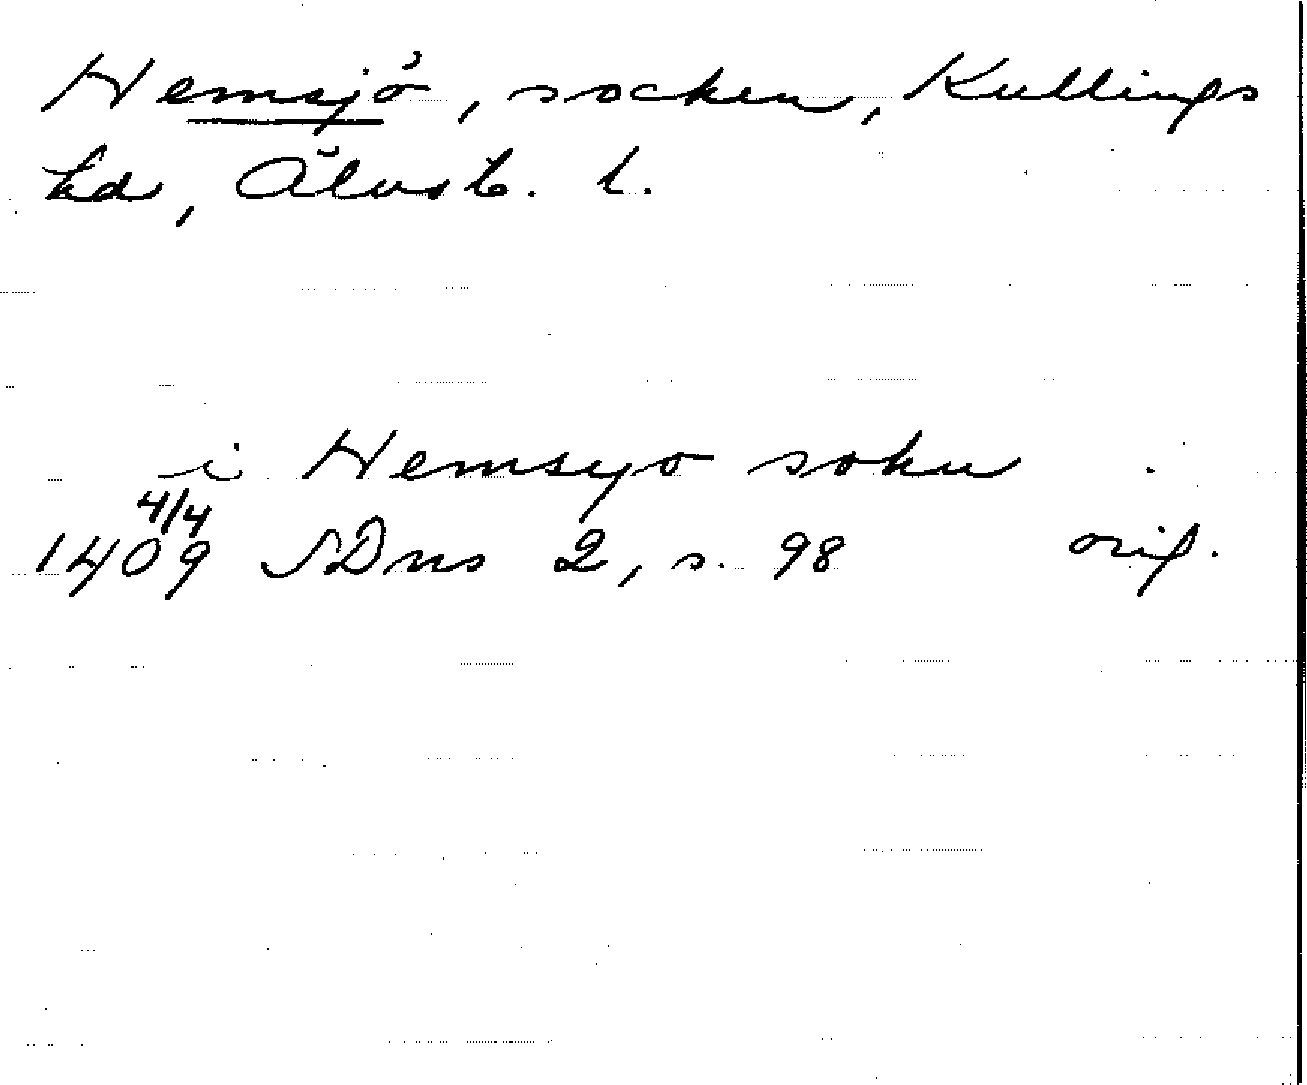 Hemsjö, socken, Kullings
hd, Älvsb. l.
i Hemsyo sokn
4/4
1409 SDns 2, s. 98 orig.